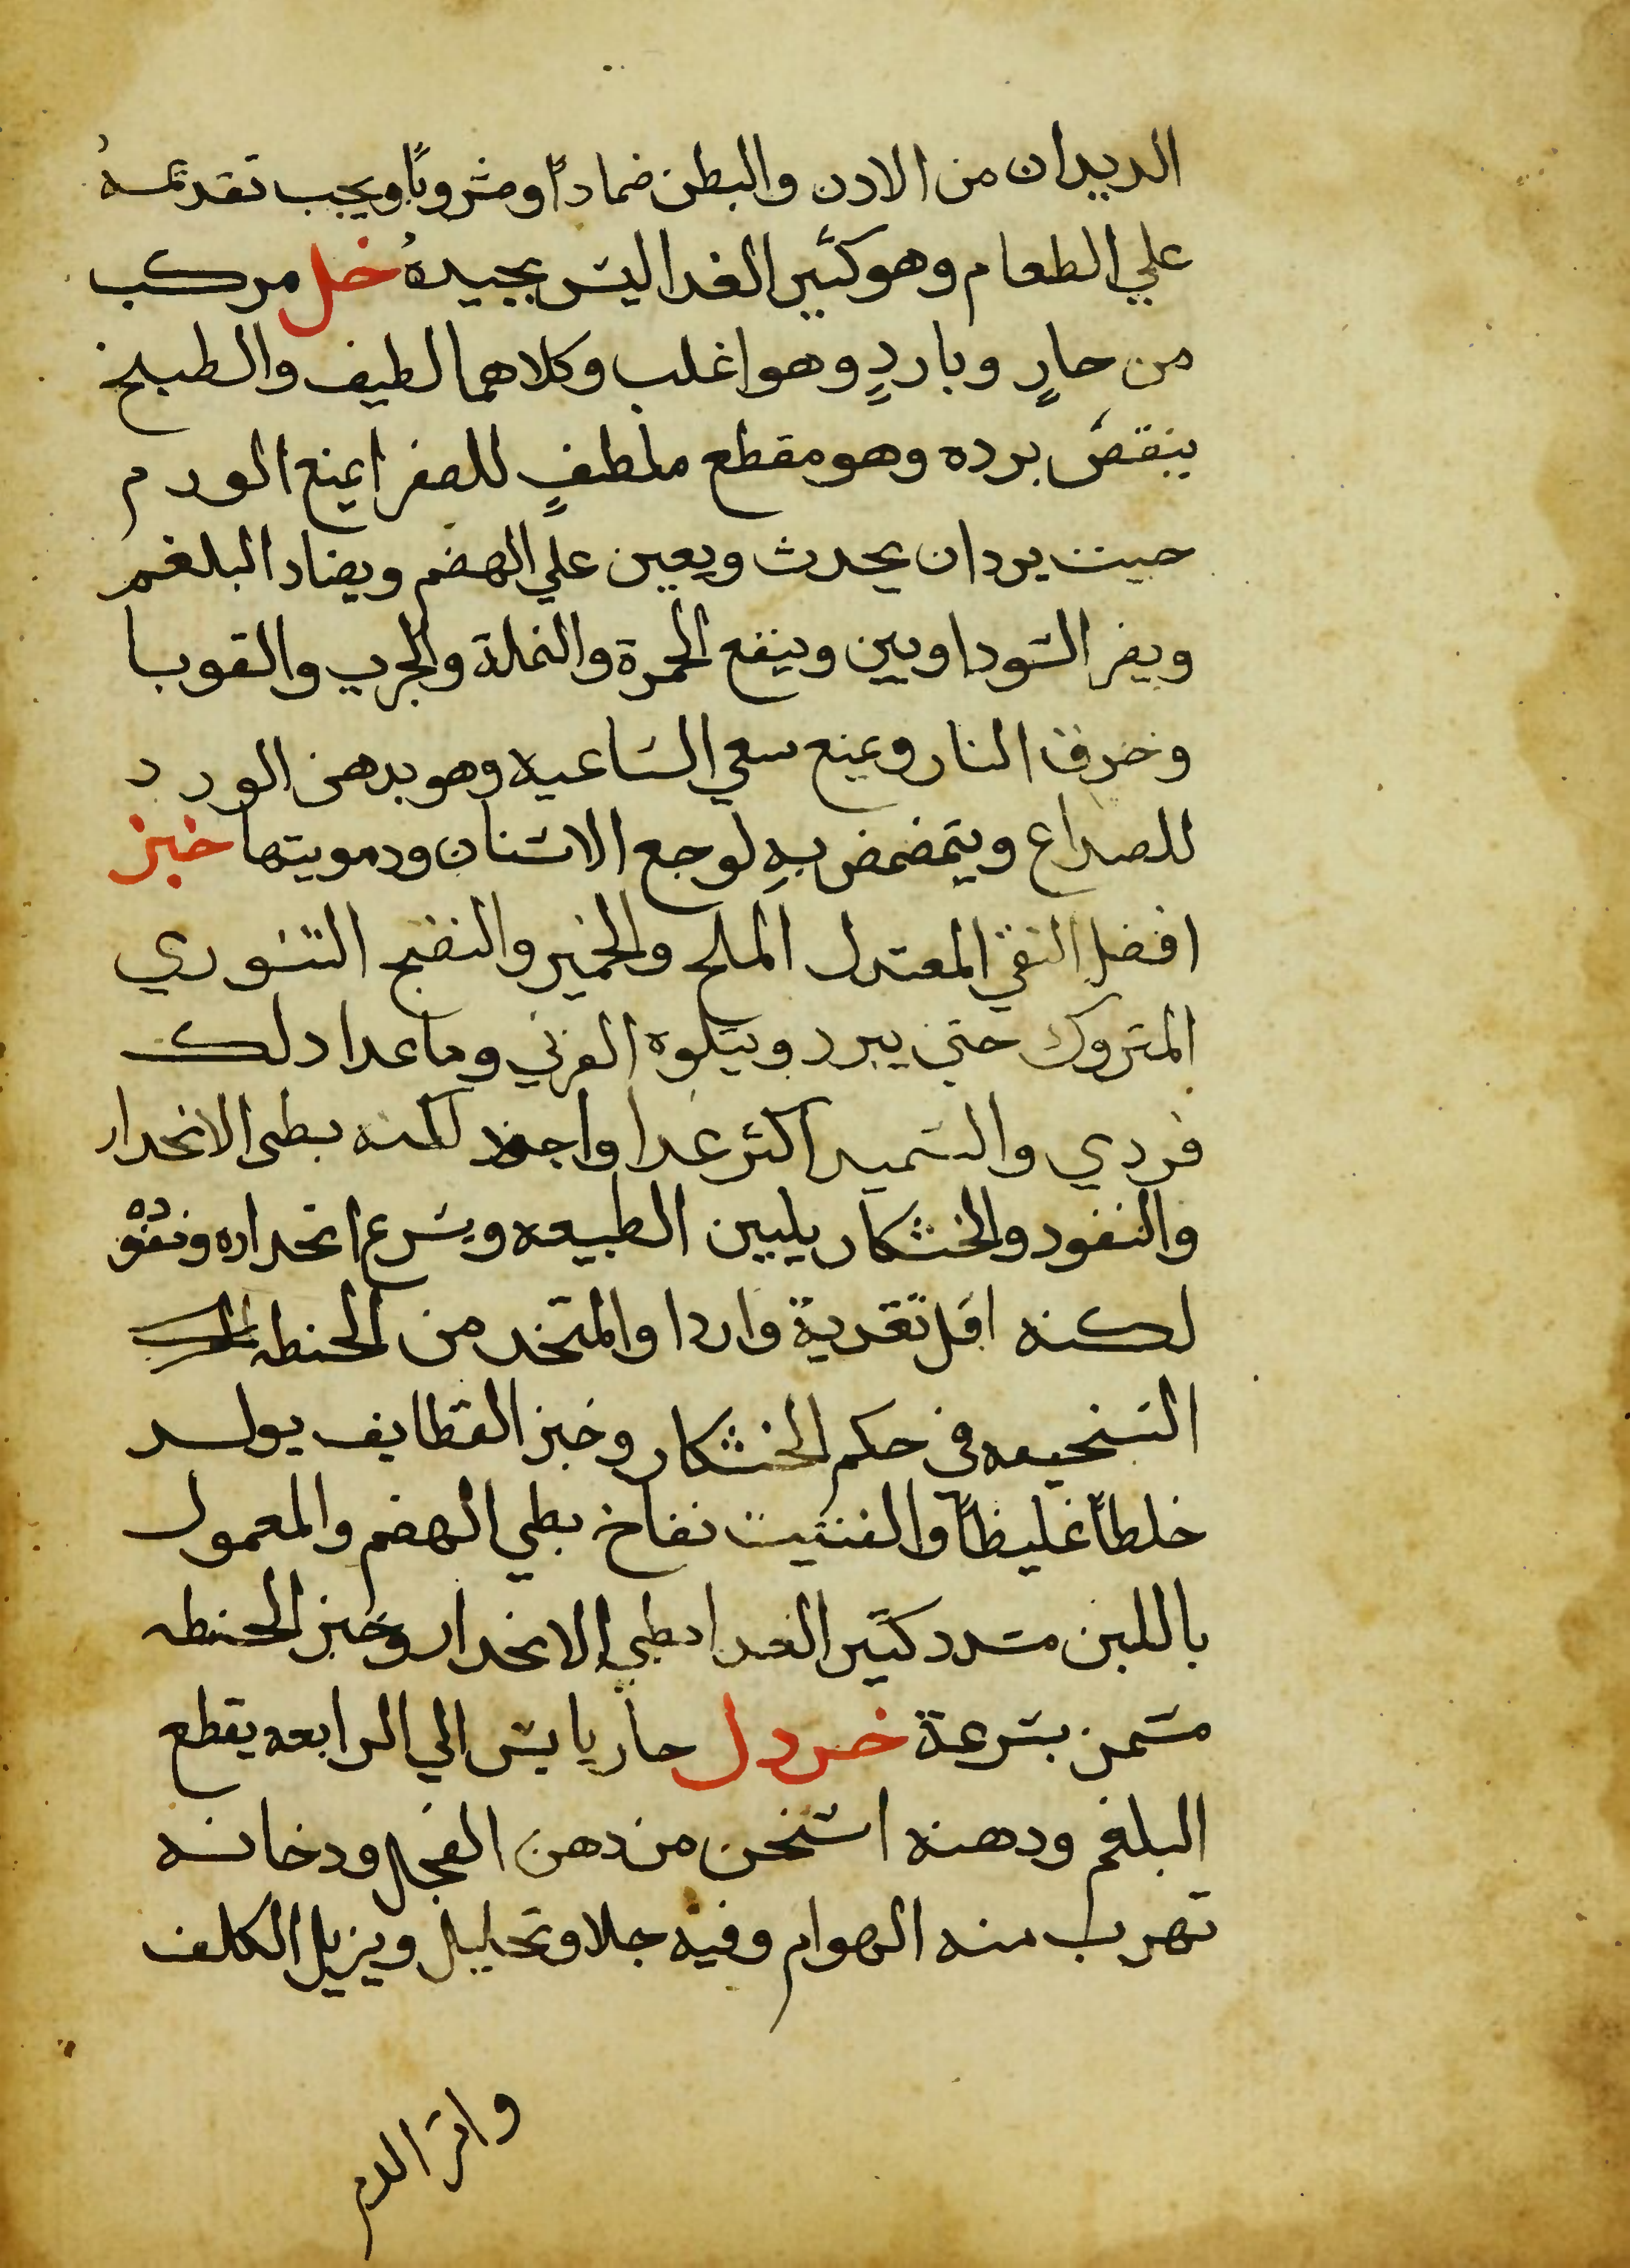 الديدان من الادن والبطن ضمادًا ومشروبًا ويجب تقديمهُ
علي الطعام وهو كثير الغدا ليس بجيدهُ خل مركب
من حارٍ وباردٍ وهو اغلب وكلاهما لطيف والطبخ
ينقصُ برده وهو مقطع ملطفٍ للصفرا يمنع الورم
حيت يردان يحدث ويعين علي الهضم ويضاد البلغم
ويضر السوداويين وينفع الحمرة والنملة والجرب والقوبا
وخرق النار ويمنع سعي الساعيه وهو بدهن الورد
للصداع ويتمضمض بهِ لوجع الاسنان ودمويتها خبز
افضل النقي المعتدل الملح والخمير والنضج التنوري
المتروك حتي يبرد ويتلوه الفرني وماعدا دلك
فردي والسميد اكثر غدا واجود لكنه بطى الانحدار
والنفود والخشكار يليين الطبيعه ويسرع انحداره ونفوده
لكنه اقل تغدية واردا والمتخد من الحنطه
السخيفه في حكم الخشكار وخبز القطايف يولد
خلطاً غليظاً والفتيت نفاخ بطي الهضم والمعمول
باللبن مسدد كثير الغدا بطي الانحدار وخبز الحنطه
مسمن بسرعة خردل حار يابس الي الرابعه يقطع
البلغم ودهنه اسخن من دهن الفجل ودخانه
تهرب منه الهوام وفيه جلا وتحليل ويزيل الكلف
واثر الدم